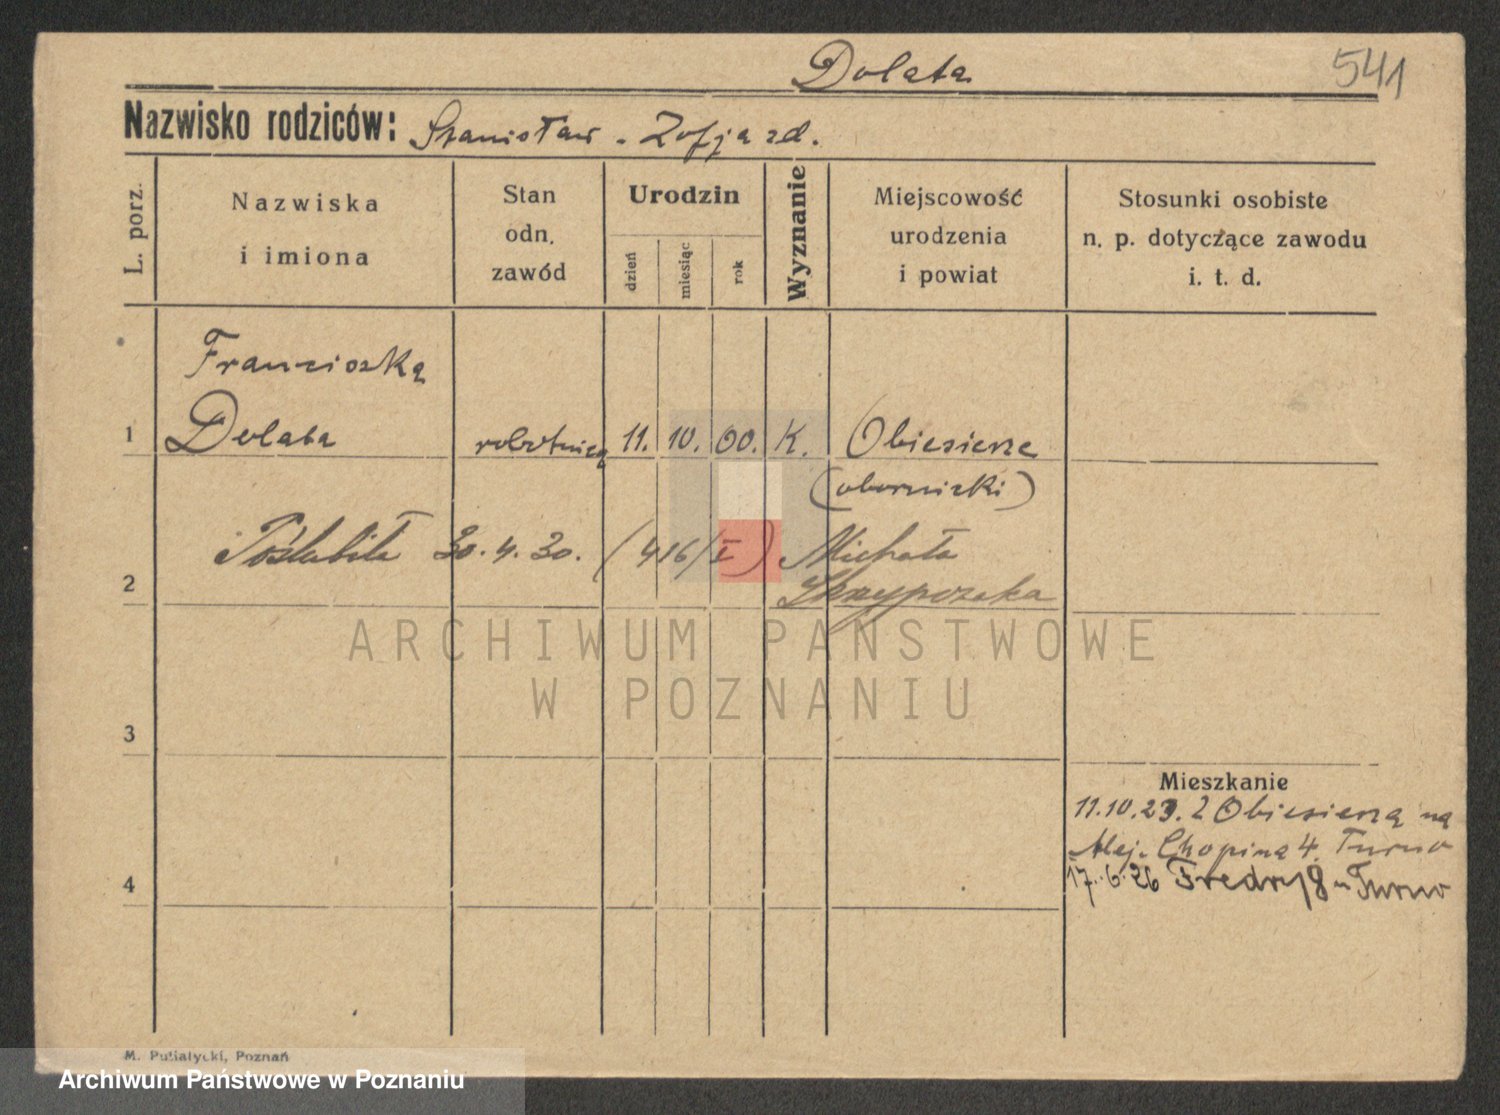 Dolata
541
Nazwisko rodziców: Stanisław - Zofja zd.
L. porz.
Nazwiska
i imiona
Stan
odn.
zawód
Urodzin
dzień
miesiąc
rok
Wyznanie
Miejscowość
urodzenia
i powiat
Stosunki osobiste
n. p. dotyczące zawodu
i. t. d.
Franciszka
1 Dolata robotnica 11. 10. 00. K. Obiesierze
(obornicki)
Poślubiła 30.4.30. (416/I) Michała
2 Skrzypczaka
ARCHIWUM PAŃSTWOWE
W POZNANIU
3
Mieszkanie
11.10.23. z Obiesierza na
Alej. Chopina 4. Turno
4
17.6.26 Fredry 8 u Turno
M. Putiatycki, Poznań
Archiwum Państwowe w Poznaniu